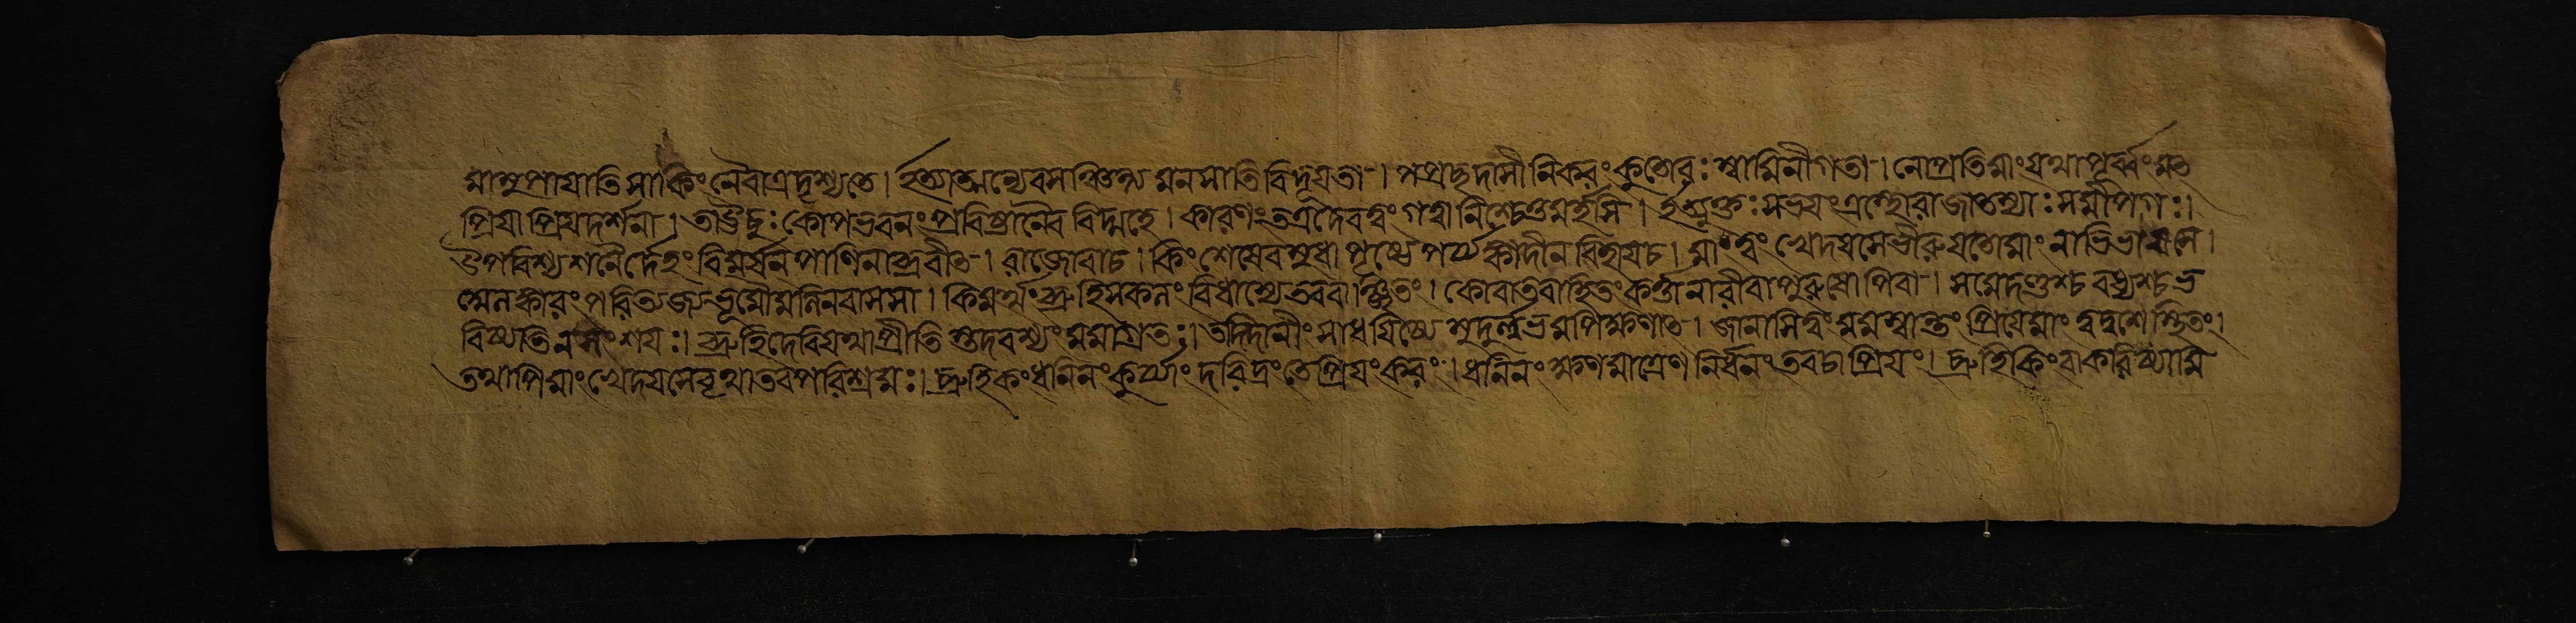 মামুপায়াতি সা কিং নৈবাত্র দৃশ্যতে । ইত্যাত্মন্যেব সঞ্চিন্ত্য মনসাতিবিদূয়তা । পপ্রচ্ছ দাসীনিকরং কুতো বঃ স্বামিনী গতা । নো প্রতি মাং যথাপূর্ব্বং মৎ
প্রিয়া প্রিয়দর্শনা । তা ঊচুঃ কোপভবনং প্রবিষ্টা নৈব বিদ্মহে । কারণং তত্র দেব ত্বং গত্বা নিশ্চেতুমর্হসি । ইত্যুক্তঃ সভয়ং রাজা তস্যাঃ সমীপগঃ ।
উপবিশ্য শনৈর্দেহং বিমৃষন্ পাণিনাব্রবীৎ । রাজোবাচ । কিং শেষে বসুধাপৃষ্ঠে পর্য্যঙ্কাদীন বিহায় চ । মাং ত্বং খেদয়সে ভীরু যতো মাং নাভিভাষসে ।
অলঙ্কারং পরিত্যজ্য ভূমৌ মলিনবাসসা । কিমর্থং ব্রূহি সকলং বিধাস্যে তব বাঞ্ছিতং । কো বা তবাহিতং কর্ত্তা নারী বা পুরুষোপি বা । স মে দণ্ড্যশ্চ বধ্যশ্চ ভ
বিষ্যতি ন সংশয়ঃ । ব্রূহি দেবি যথা প্রীতিস্তদবশ্যং মমাগ্রতঃ । তদিদানীং সাধয়িষ্যে সুদুর্লভমপি ক্ষণাৎ । জানাসি ত্বং মম স্বান্তং প্রিয়ে মাং ত্বদ্বশে স্থিতং ।
তথাপি মাং খেদয়সে বৃথা তব পরিশ্রমঃ । ব্রূহি কং ধনিনং কুর্য্যাং দরিদ্রং তে প্রিয়ংকরং । ধনিনং ক্ষণমাত্রেণ নির্ধনং তব চাপ্রিয়ং । ব্রূহি কিং বা করিষ্যামি